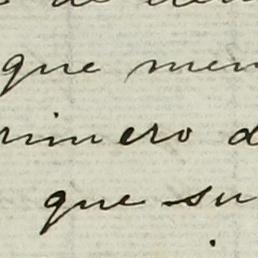 que men
rimero d
que su